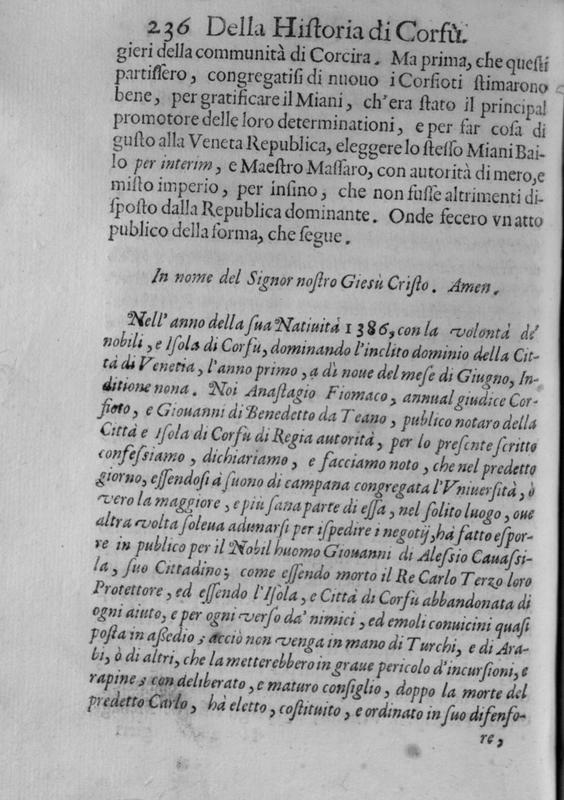 236 Della Hiſtoria di Corfù.
gieri della communità di Corcira. Ma prima, che queſti
partiſſero, congregatiſi di nuouo i Corfioti ſtimarono
bene, per gratificare il Miani, ch'era ſtato il principal
promotore delle loro determinationi, e per far coſa di
guſto alla Veneta Republica, eleggere lo ſteſſo Miani Bai-
lo per interim, e Maeſtro Maſſaro, con autorità di mero, e
miſto imperio, per inſino, che non fuſſe altrimenti di-
ſpoſto dalla Republica dominante. Onde fecero vn atto
publico della forma, che ſegue.
In nome del Signor noſtro Gieſù Criſto. Amen.
Nell' anno della ſua Natiuità 1386, con la volontà de'
nobili, e Iſola di Corfù, dominando l'inclito dominio della Cit-
tà di Venetia, l'anno primo, a dì noue del meſe di Giugno, In-
ditione nona. Noi Anaſtagio Fiomaco, annual giudice Cor-
fioto, e Giouanni di Benedetto da Teano, publico notaro della
Città e Iſola di Corfù di Regia autorità, per lo preſente ſcritto
confeſſiamo, dichiariamo, e facciamo noto, che nel predetto
giorno, eſſendoſi à ſuono di campana congregata l'Vniuerſità, ò
vero la maggiore, e più ſana parte di eſſa, nel ſolito luogo, oue
altra volta ſoleua adunarſi per iſpedire i negotij, hà fatto eſpor-
re in publico per il Nobil huomo Giouanni di Aleſſio Cauaſſi-
la, ſuo Cittadino; come eſſendo morto il Re Carlo Terzo loro
Protettore, ed eſſendo l'Iſola, e Città di Corfù abbandonata di
ogni aiuto, e per ogni verſo da' nimici, ed emoli conuicini quaſi
poſta in aſſedio; acciò non venga in mano di Turchi, e di Ara-
bi, ò di altri, che la metterebbero in graue pericolo d'incurſioni, e
rapine; con deliberato, e maturo conſiglio, doppo la morte del
predetto Carlo, hà eletto, coſtituito, e ordinato in ſuo difenſo-
re,